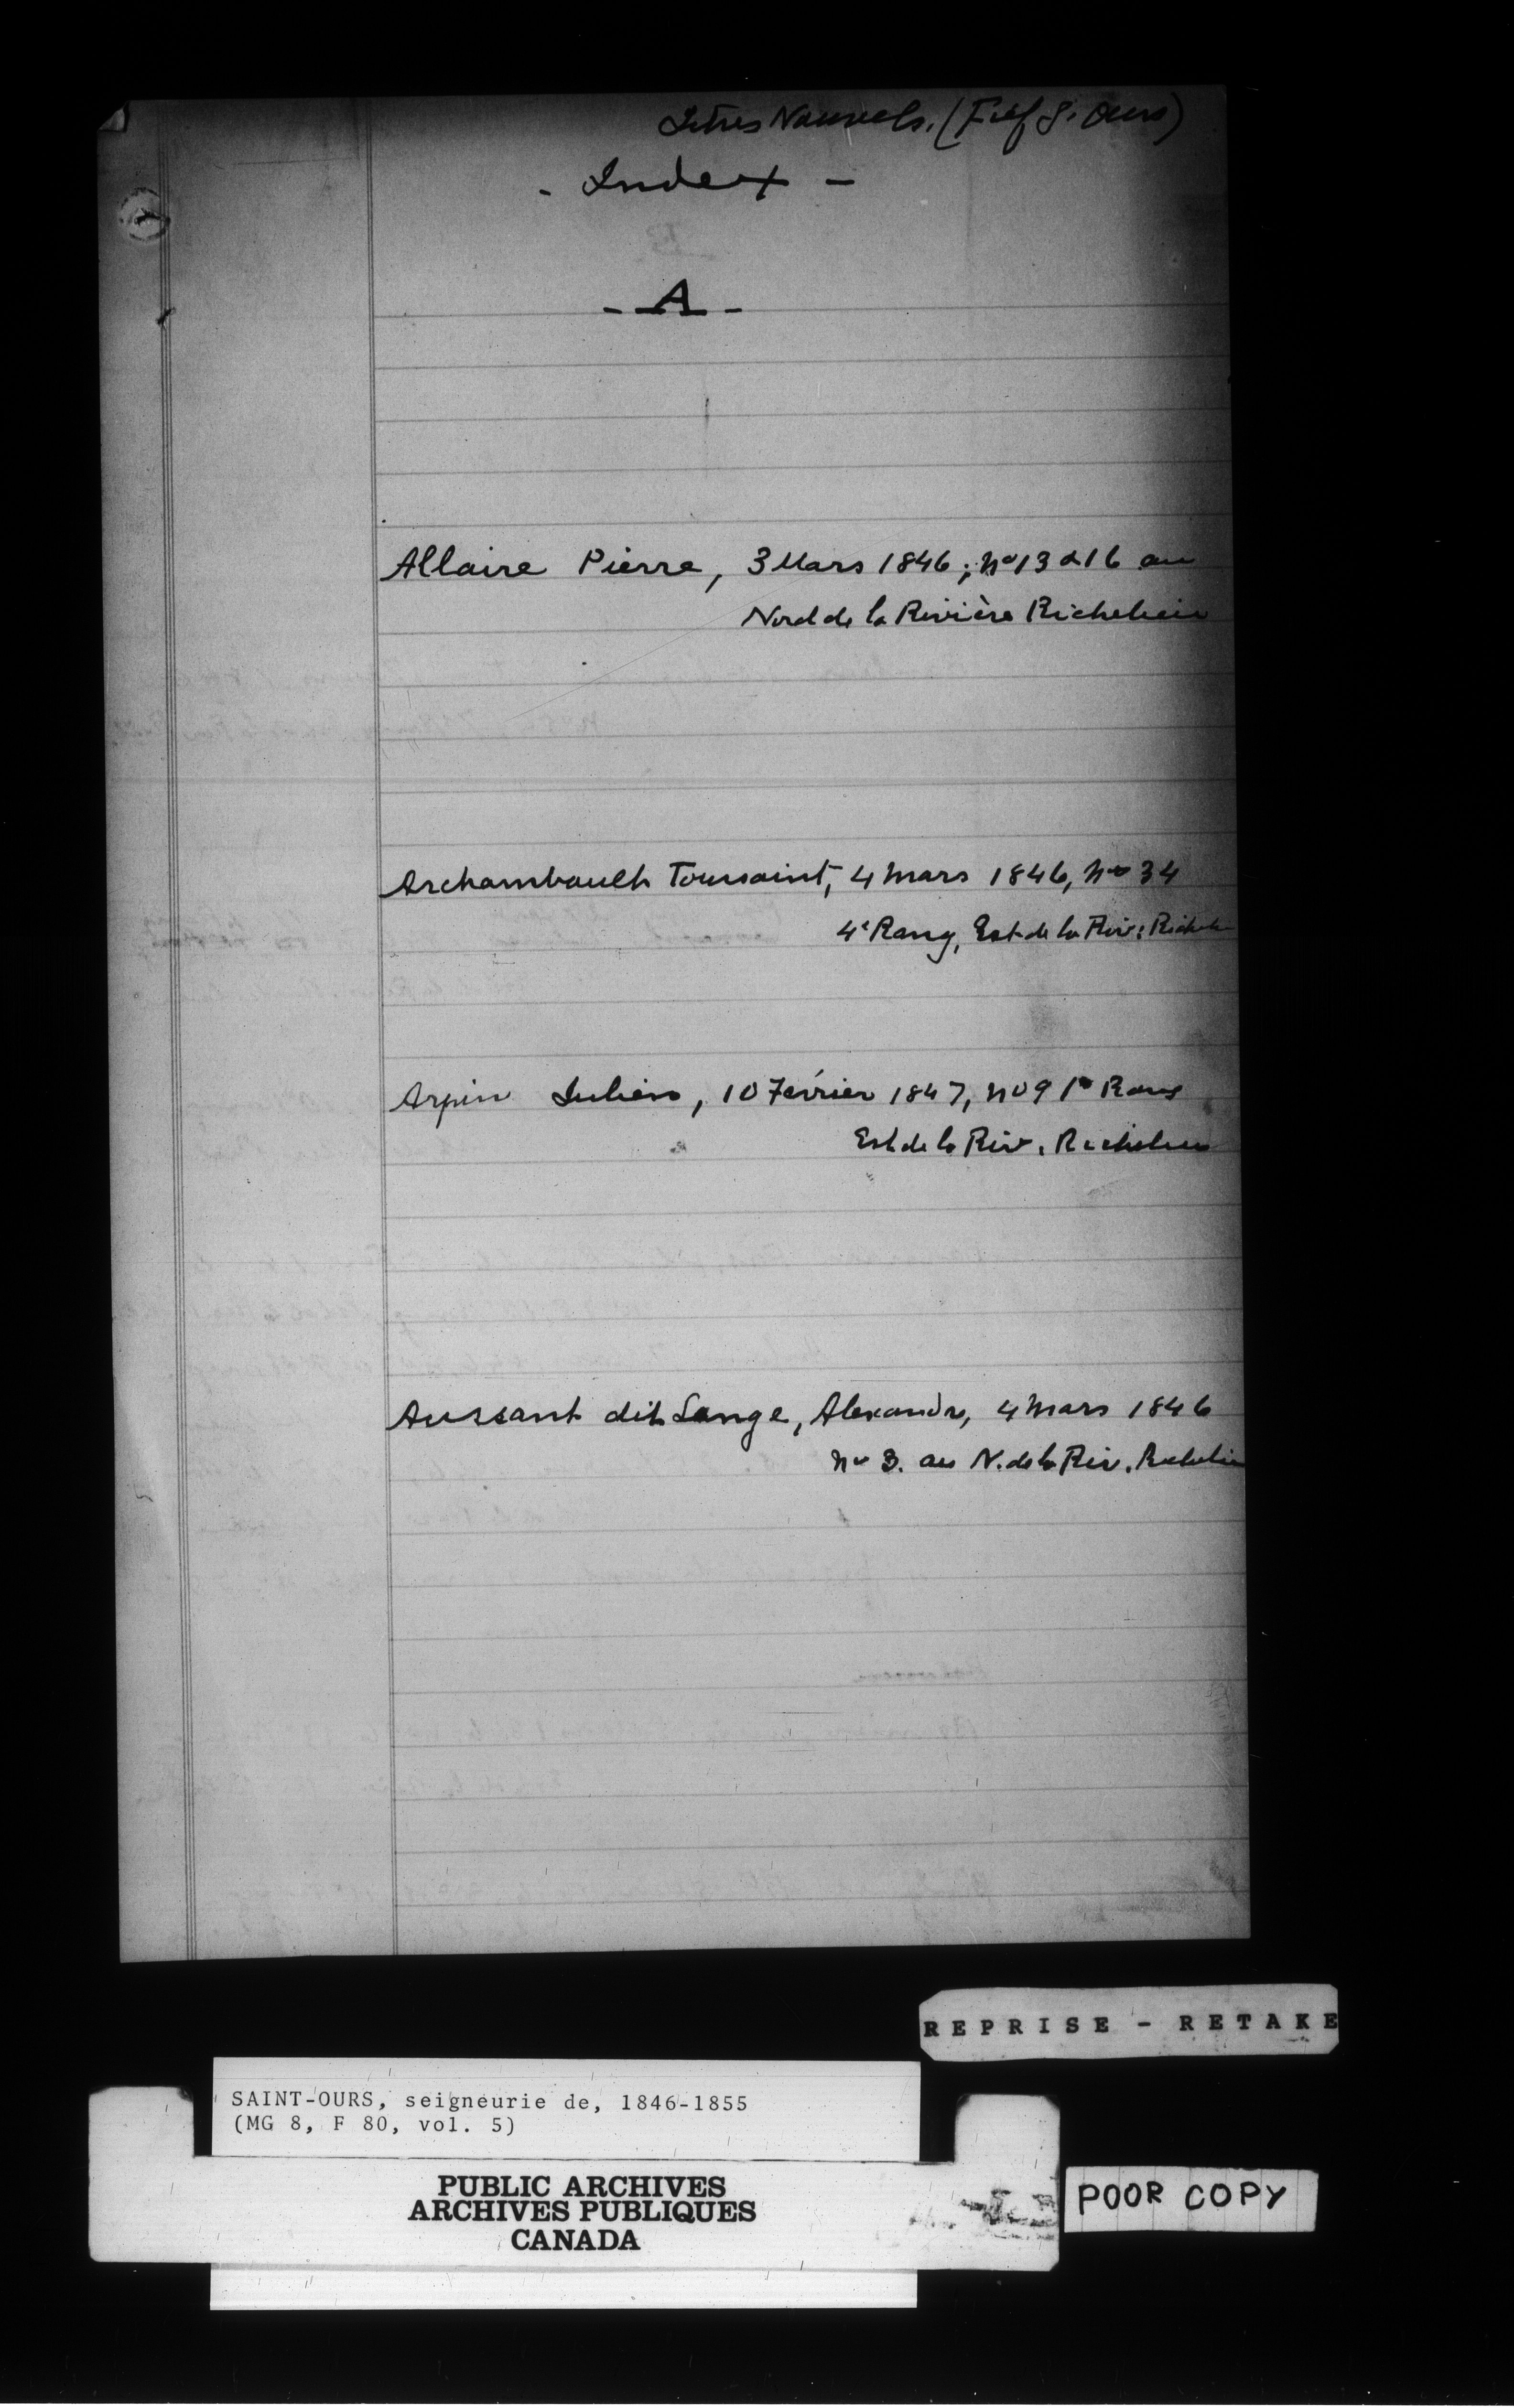 Titres Nouvels. (Fief S. Ours)
- Index -
- A -
Allaire Pierre, 3 Mars 1846; no 13 & 16 au
Nord de la Rivière Richelieu
Archambault Toussaint, 4 Mars 1846, no 34
4e Rang, Est de la Riv: Richelieu
Arpin Julien, 10 Février 1847, no 9 1r Rang
Est de la Riv. Richelieu
Aussant dit Lange, Alexandre, 4 Mars 1846
no 3. au N. de la Riv. Richelieu
REPRISE - RETAKE
SAINT-OURS, seigneurie de, 1846-1855
(MG 8, F 80, vol. 5)
PUBLIC ARCHIVES
ARCHIVES PUBLIQUES
CANADA
POOR COPY